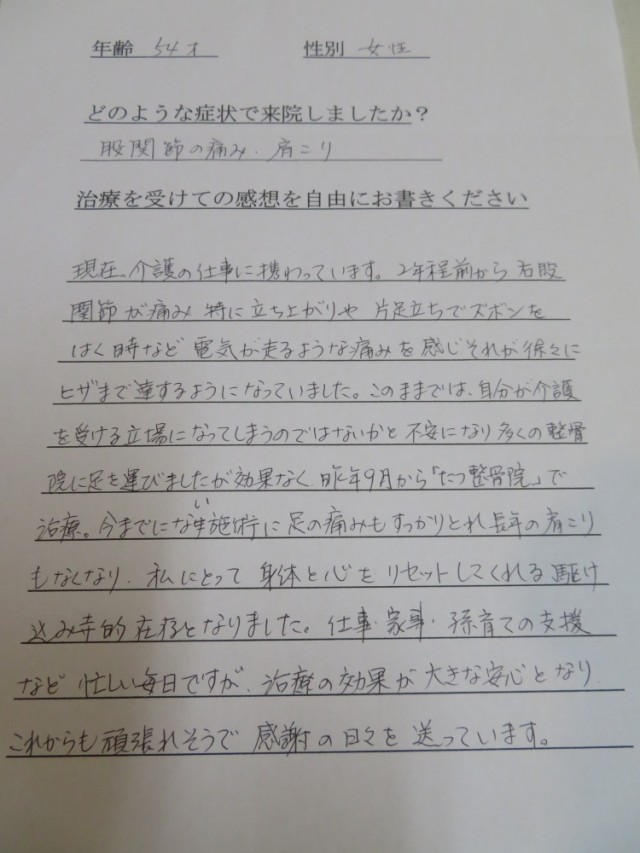 年齢 54才 性別 女性
どのような症状で来院しましたか？
股関節の痛み．肩こり
治療を受けての感想を自由にお書きください
現在、介護の仕事に携わっています。2年程前から右股
関節が痛み 特に立ち上がりや 片足立ちでズボンを
はく時など 電気が走るような痛みを感じそれが徐々に
ヒザまで達するようになっていました。このままでは、自分が介護
を受ける立場になってしまうのではないかと 不安になり多くの整骨
院に足を運びましたが効果なく、昨年9月から「たつ整骨院」で
治療。今までにない施術に足の痛みもすっかりとれ長年の肩こり
もなくなり、私にとって 身体と心をリセットしてくれる駆け
込み寺的存在となりました。仕事・家事・孫育ての支援
など 忙しい毎日ですが、治療の効果が大きな安心となり、
これからも頑張れそうで 感謝の日々を 送っています。